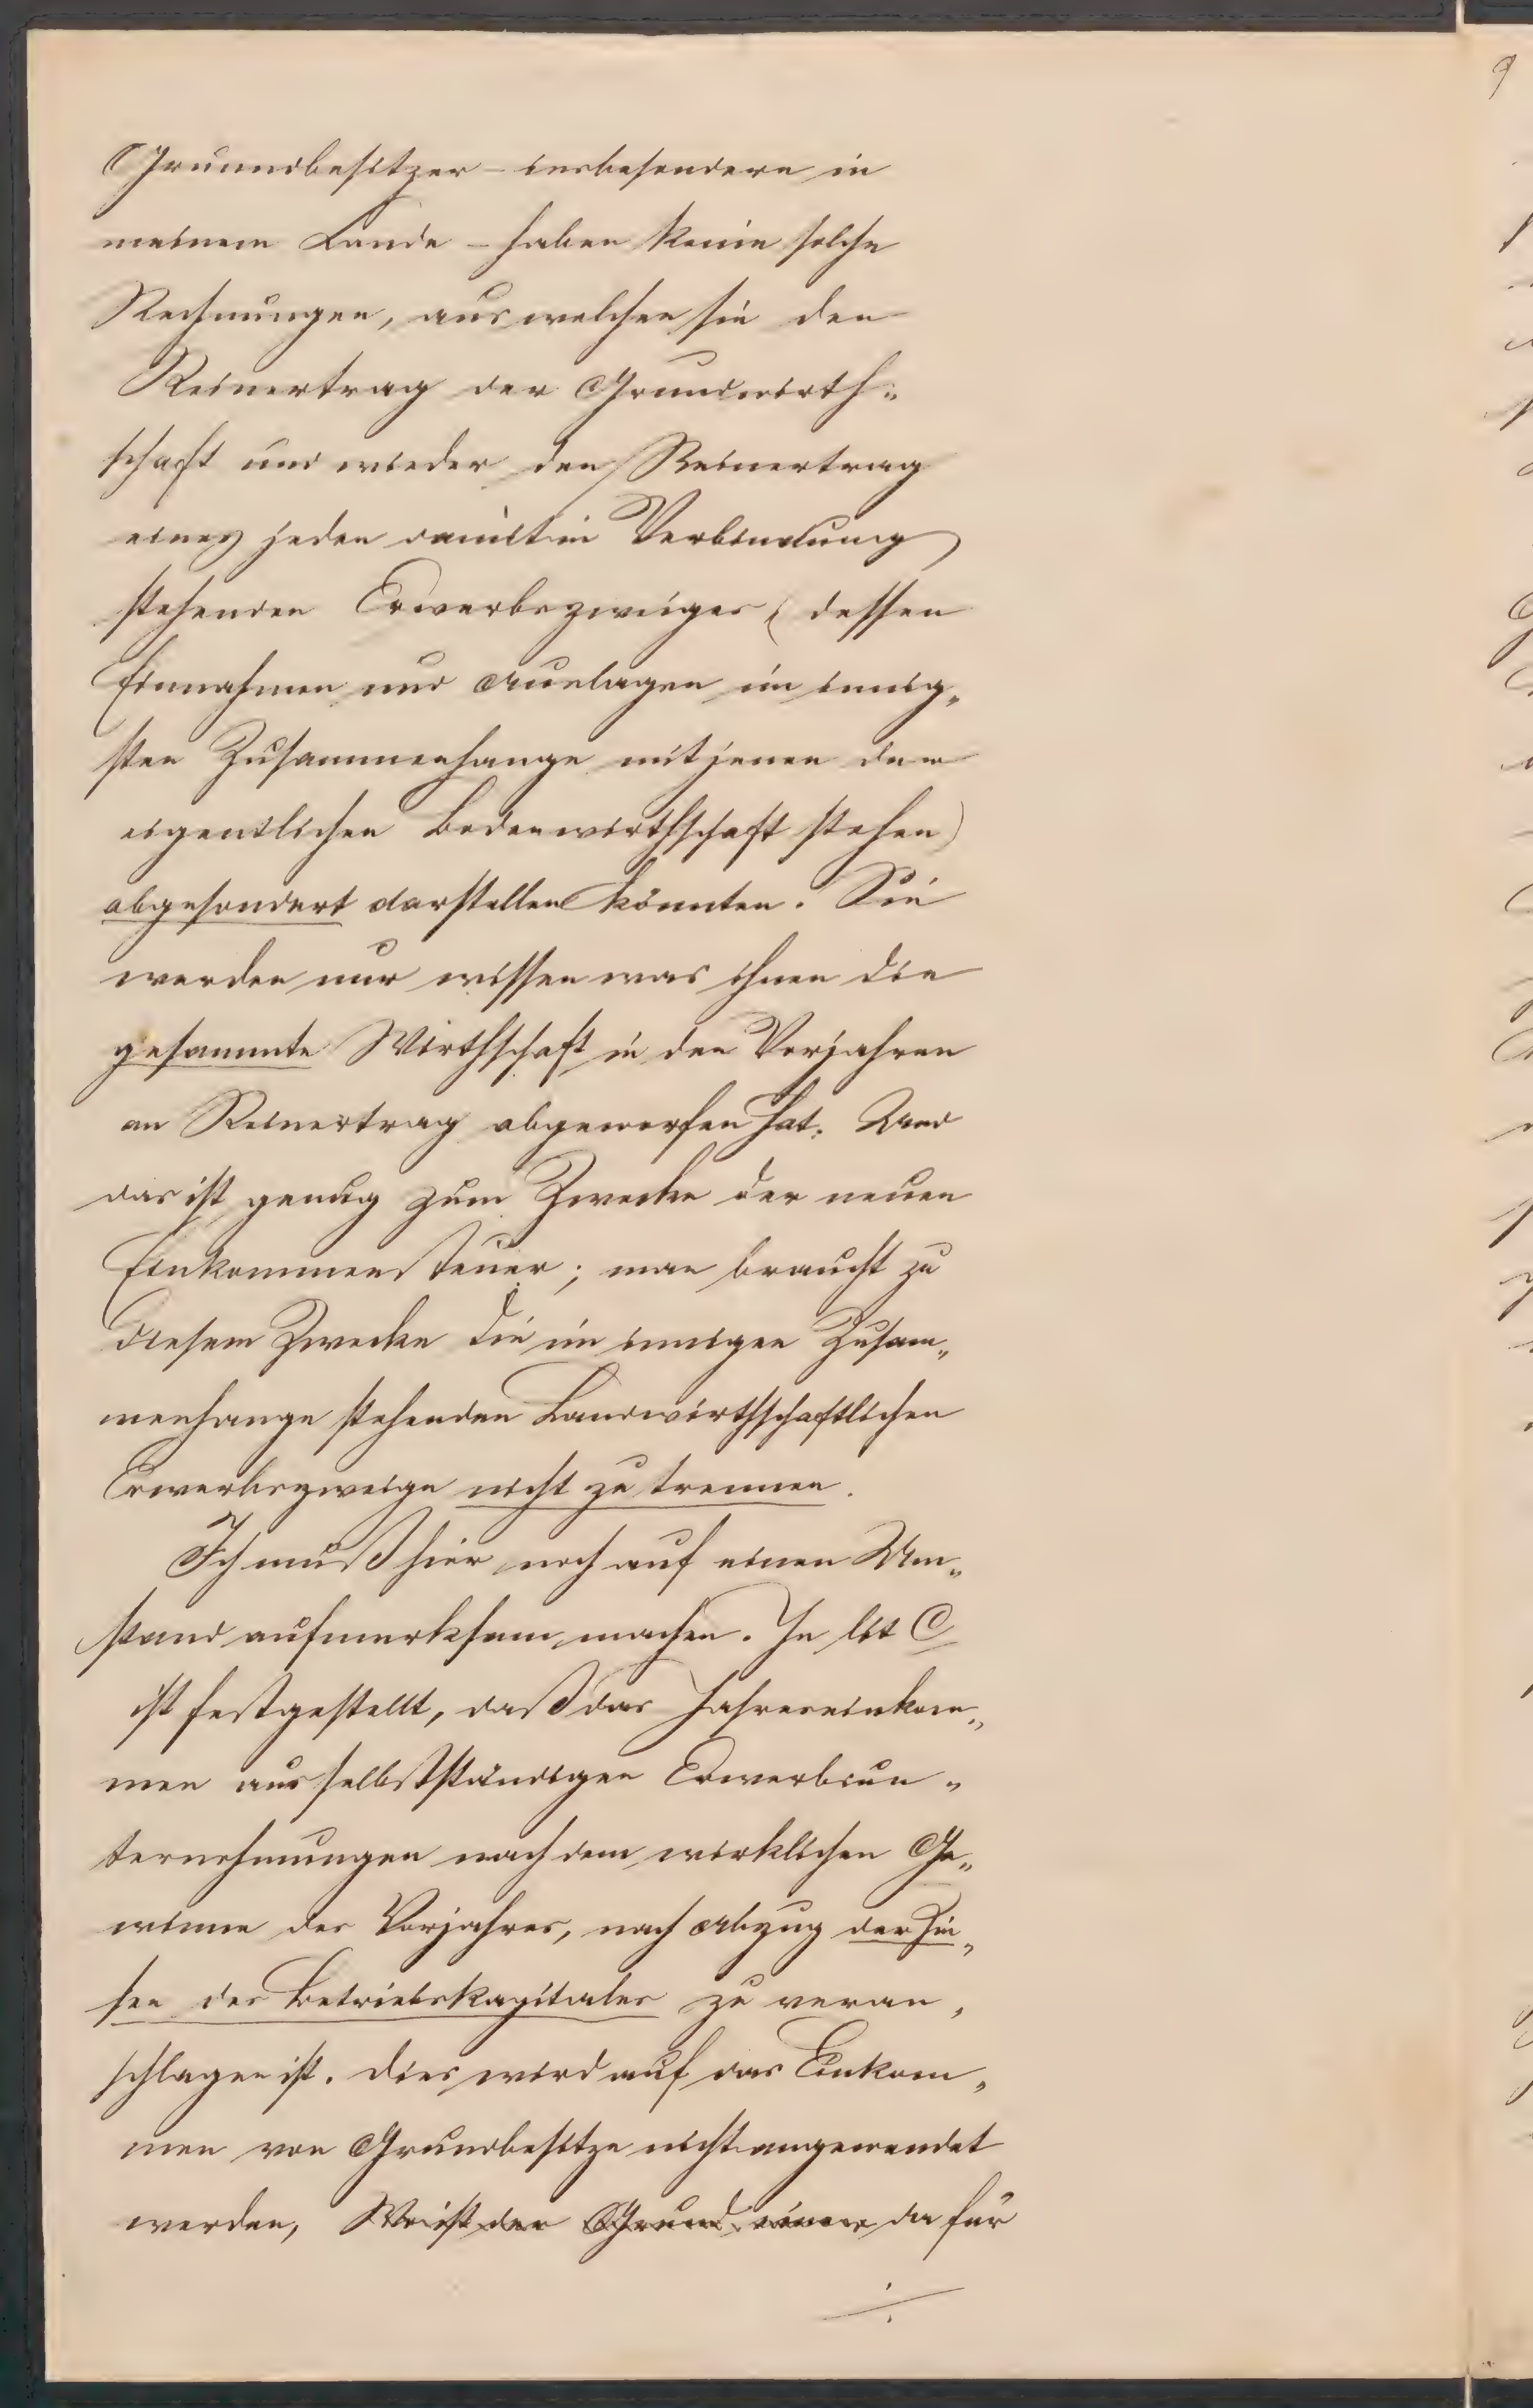 Grundbesitzer – insbesondere in
meinem Lande – haben keine solche
Rechnungen, aus welchen sie den
Reinertrag der Grundwirth=
schaft und wieder den Reinertrag
eines jeden damit in Verbindung
stehenden Erwerbszweiges (dessen
Einnahmen und Auslagen im innig„
sten Zusammenhange mit jenen der
eigentlichen Bodenwirthschaft stehen)
abgesondert darstellen könnten. Sie
werden nur wissen was ihnen die
gesammte Wirthschaft in den Vorjahren
an Reinertrag abgeworfen hat. Und
das ist genug zum Zwecke der neuen
Einkommensteuer; man braucht zu
diesem Zwecke die im innigen Zusam„
menhange stehenden Landwirthschaftlichen
Erwerbszweige nicht zu trennen.
Ich muß hier noch auf einen Um„
stand aufmerksam machen. In lit C
ist festgestellt, daß das Jahreseinkom„
men aus selbstständigen Erwerbsun„
ternehmungen nach dem wirklichen Ge„
winne des Vorjahres, nach Abzug der Zin„
sen des Betriebskapitales zu veran„
schlagen ist. Dies wird auf das Einkom„
men von Grundbesitze nicht angewendet
werden, Wo ist der Grund dafür
./.